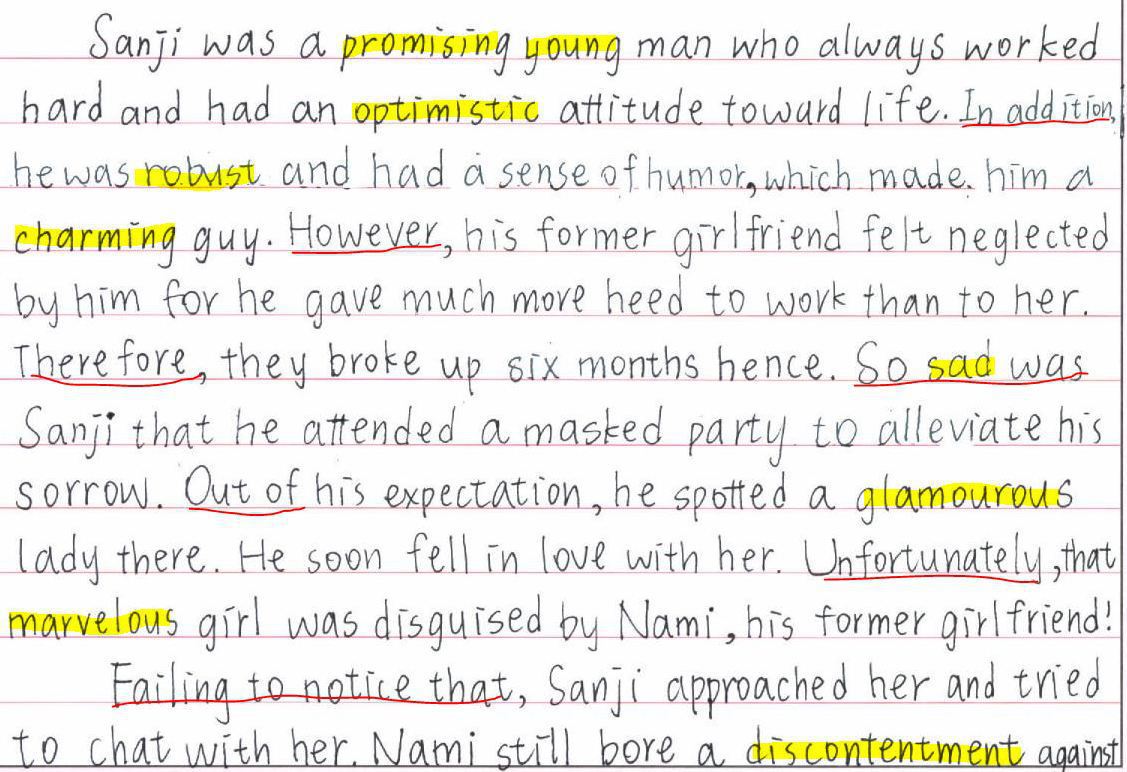 Sanji was a promising young man who always worked
hard and had an optimistic attitude toward life. In addition,
he was robust and had a sense of humor, which made him a
charming guy. However, his former girlfriend felt neglected
by him for he gave much more heed to work than to her.
Therefore, they broke up six months hence. So sad was
Sanji that he attended a masked party to alleviate his
sorrow. Out of his expectation, he spotted a glamourous
lady there. He soon fell in love with her. Unfortunately, that
marvelous girl was disguised by Nami, his former girlfriend!
Failing to notice that, Sanji approached her and tried
to chat with her. Nami still bore a discontentment against